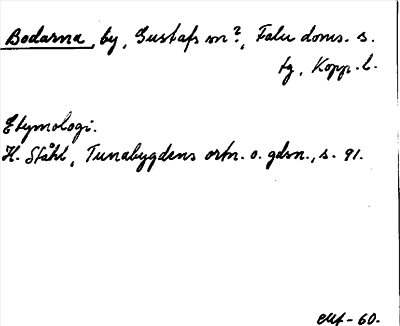 Bodarna, by, Gustafs sn?, Falu doms. s.
tg, Kopp. l.
Etymologi.
H. Ståhl, Tunabygdens ortn. o. gdsn., s. 91.
-60.